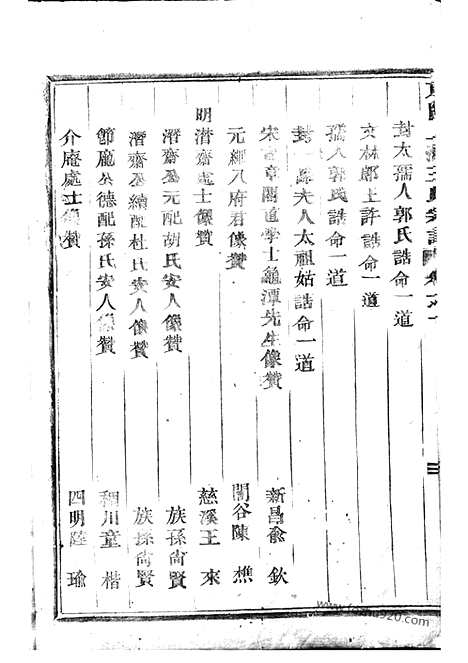 封太孺人郭氏誥命一道
文林郎上許誥命一道
孺人郭氏誥命一道
封 夫人太祖姑誥命一道
宋 章閣直學士龜潭先生像贊 新昌俞 欽
元 八府君像贊 谷陳 樵
明潛齋處士像贊 慈溪王 來
潛齋公元配胡氏安人像贊 族孫尙賢
潛齋公續配杜氏安人像贊 族孫尙賢
節庵公德配孫氏安人像贊 川童 楷
介庵處士像贊 四明陸 瑜